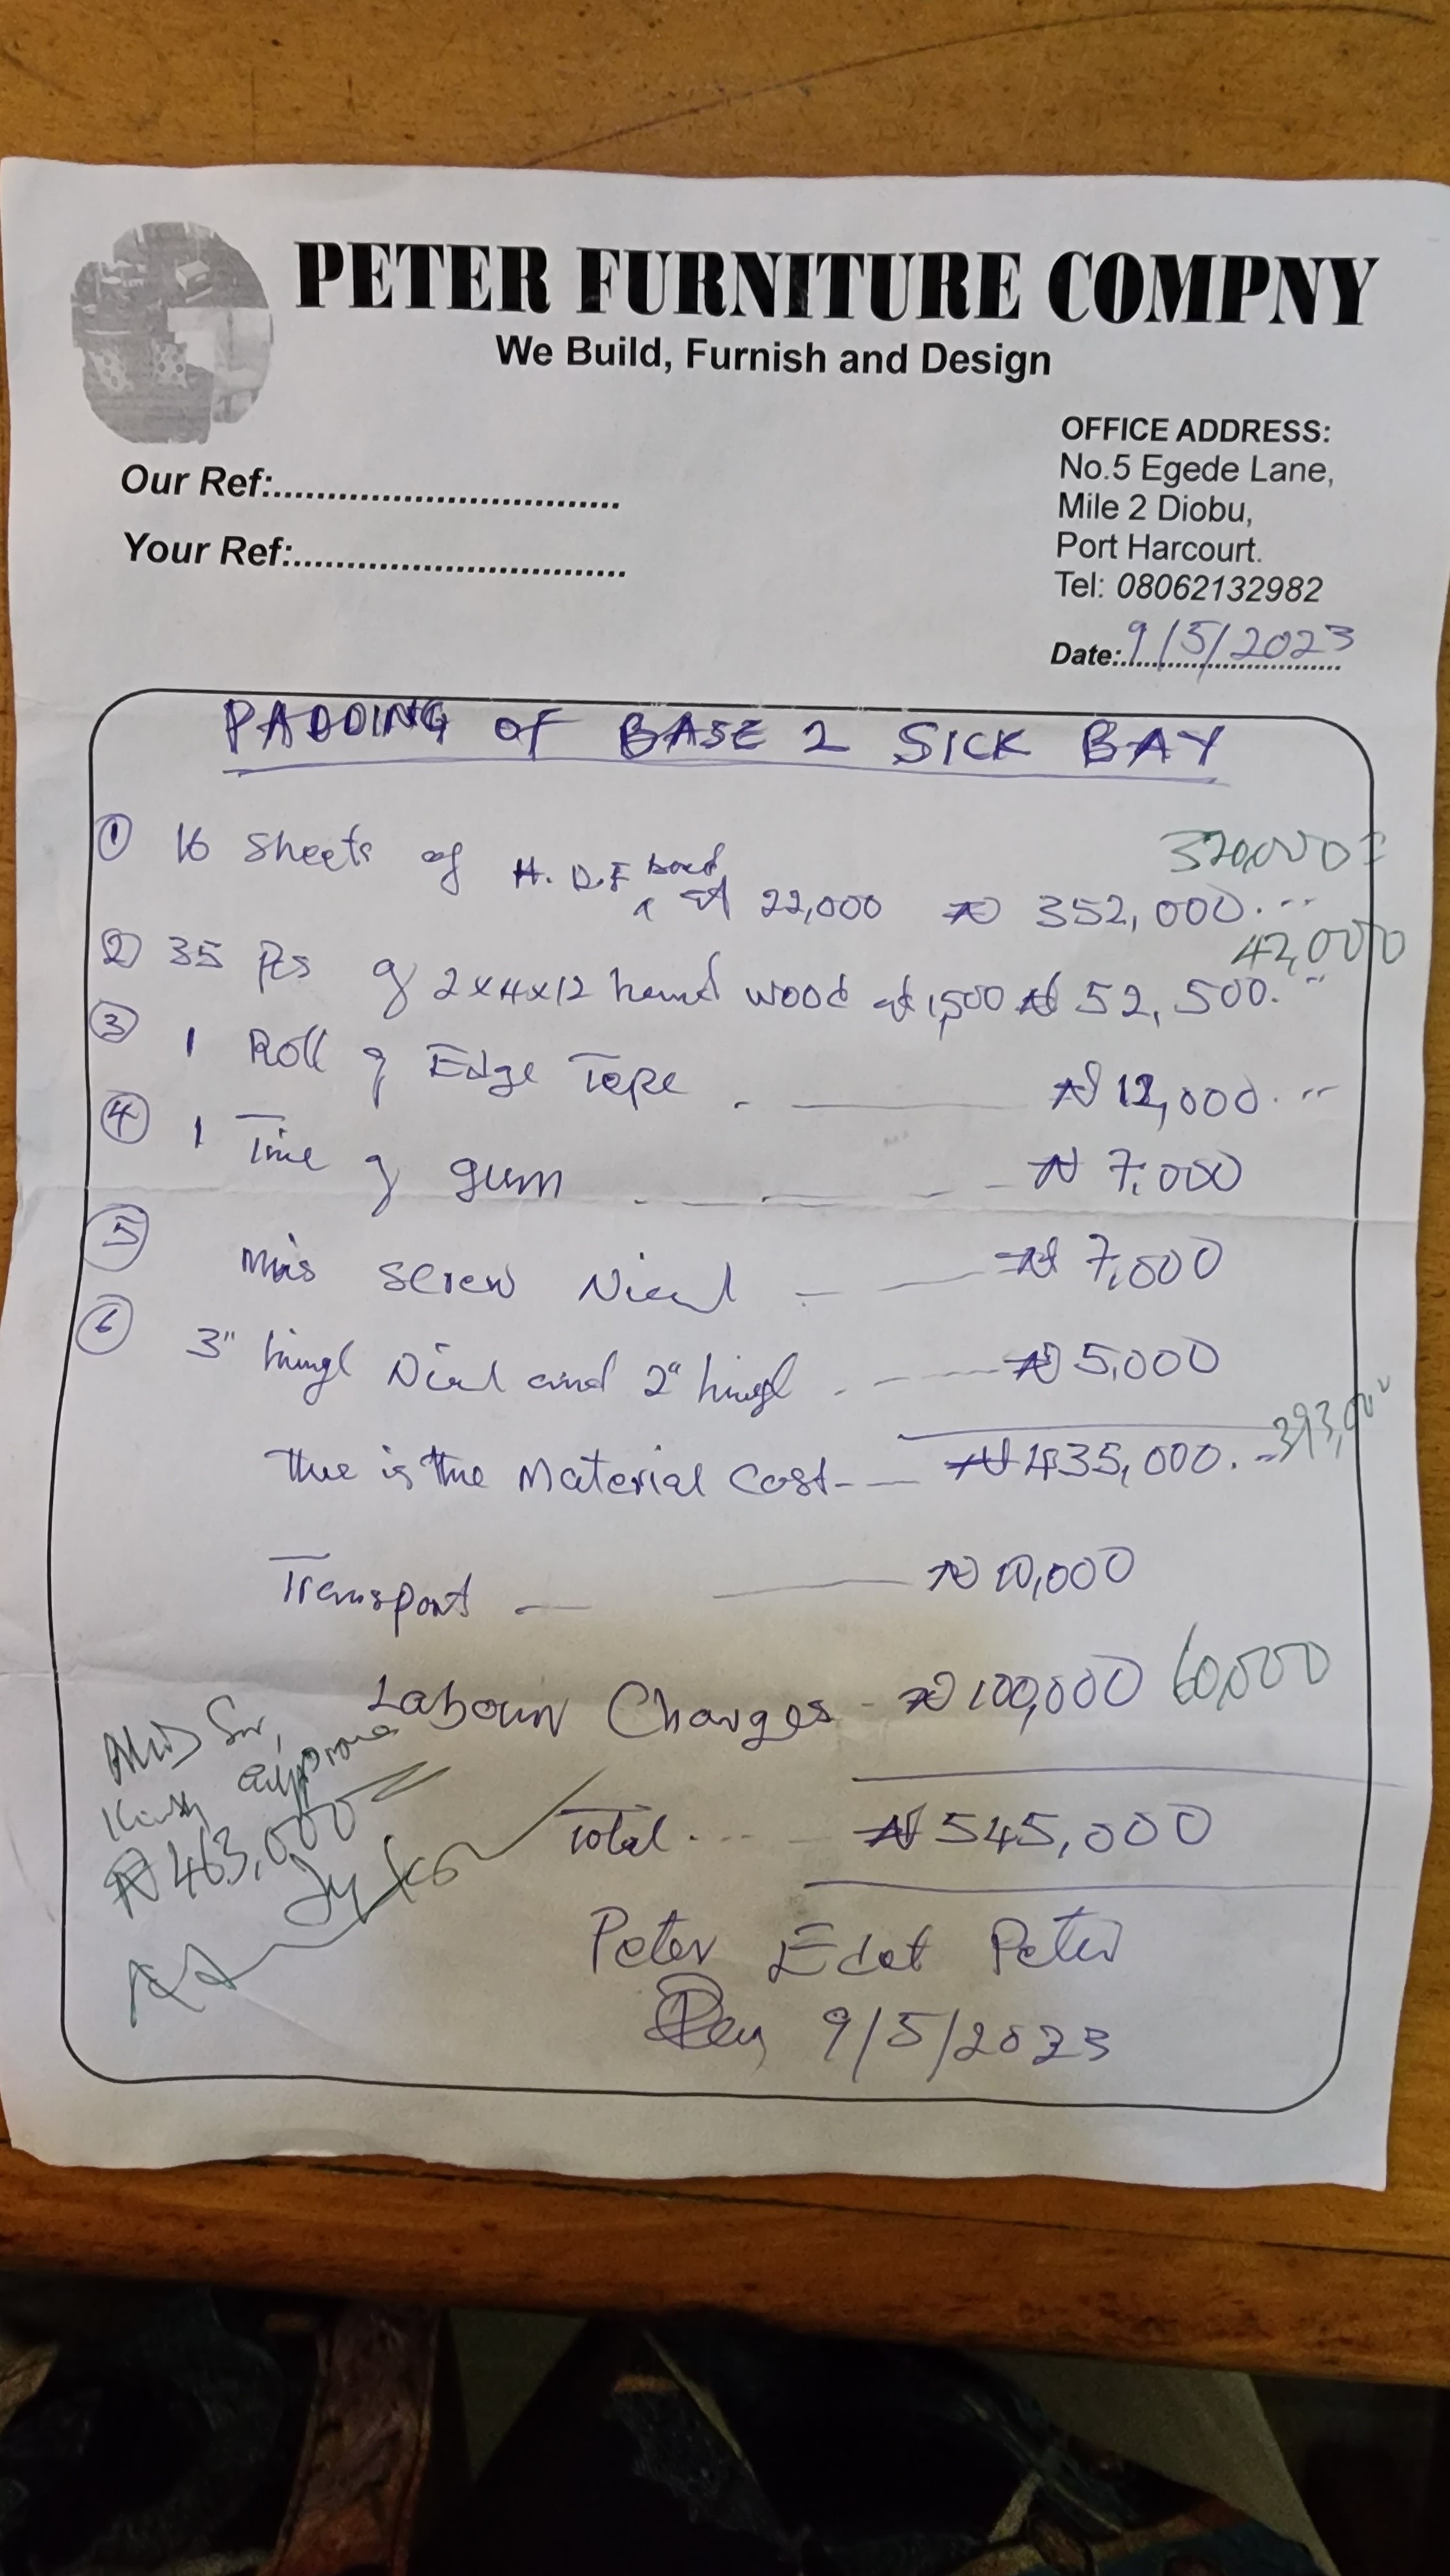 PETER FURNITURE COMPNY
We Build, Furnish and Design
OFFICE ADDRESS:
No.5 Egede Lane,
Mile 2 Diobu,
Port Harcourt.
Tel: 08062132982
Our Ref:
Your Ref:
Date: 9/5/2023
PADDING OF BASE 2 SICK BAY
320,000
① 16 Sheets of H.D.F board at 22,000 ₦ 352,000
42,000
② 35 Pcs of 2x4x12 hard wood at 1,500 ₦ 52,500
③ 1 Roll of Edge Tape ₦ 12,000
④ 1 Tine of gum ₦ 7,000
⑤ mis screw Nial ₦ 7,000
⑥ 3" hingl Nial and 2" hingl ₦ 5,000
393,000
the is the Material Cost ₦ 435,000
Transport ₦ 10,000
Labour Charges ₦ 100,000 60,000
Total ₦ 545,000
Sir,
approve
₦ 463,000
Peter Edet Peter
9/5/2023